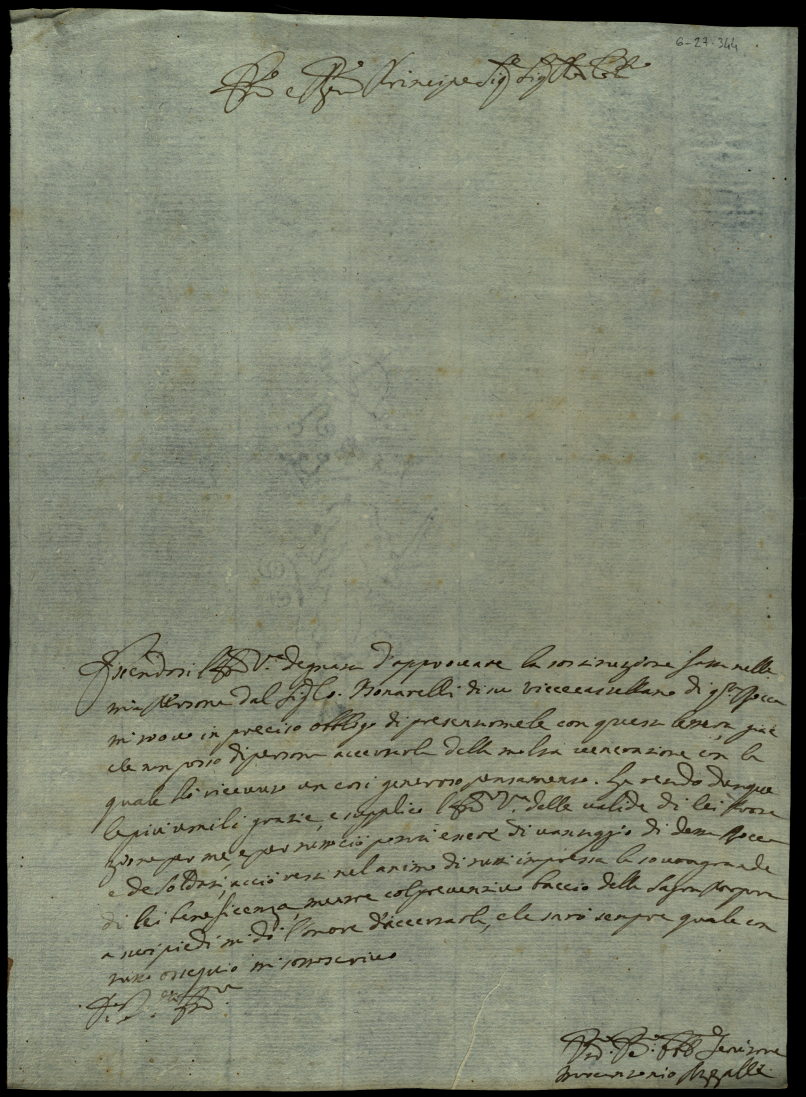 6-27-344
e Principe Sig.
Essendosi l'Em. V.a degnata d'approvare la sostituzione fatta nella
mia Persona dal Sig. Co. Bonarelli di suo vicecastellano di q.ta Rocca
mi trovo in preciso obbligo di presentarmele con questa lettera, già
che non posso di persona accertarla della molta venerazione con la
quale hò ricevuto un così generoso pensamento. Le rendo dunque
le più umili grazie, e supplico l'Em. V.a della valida di lei Protez
zione per me, e per tutto ciò possa essere di vantaggio di detta Rocca
e de Soldati, acciò resti nel animo di tutti impressa la sovragrande
di lei beneficenza, mentre col preventivo baccio della Sagra Porpora
a suoi piedi mi dò l'onore d'accertarla, che sarò sempre quale con
tutto ossequio mi sottoscrivo
Di V. Em.
Servitore